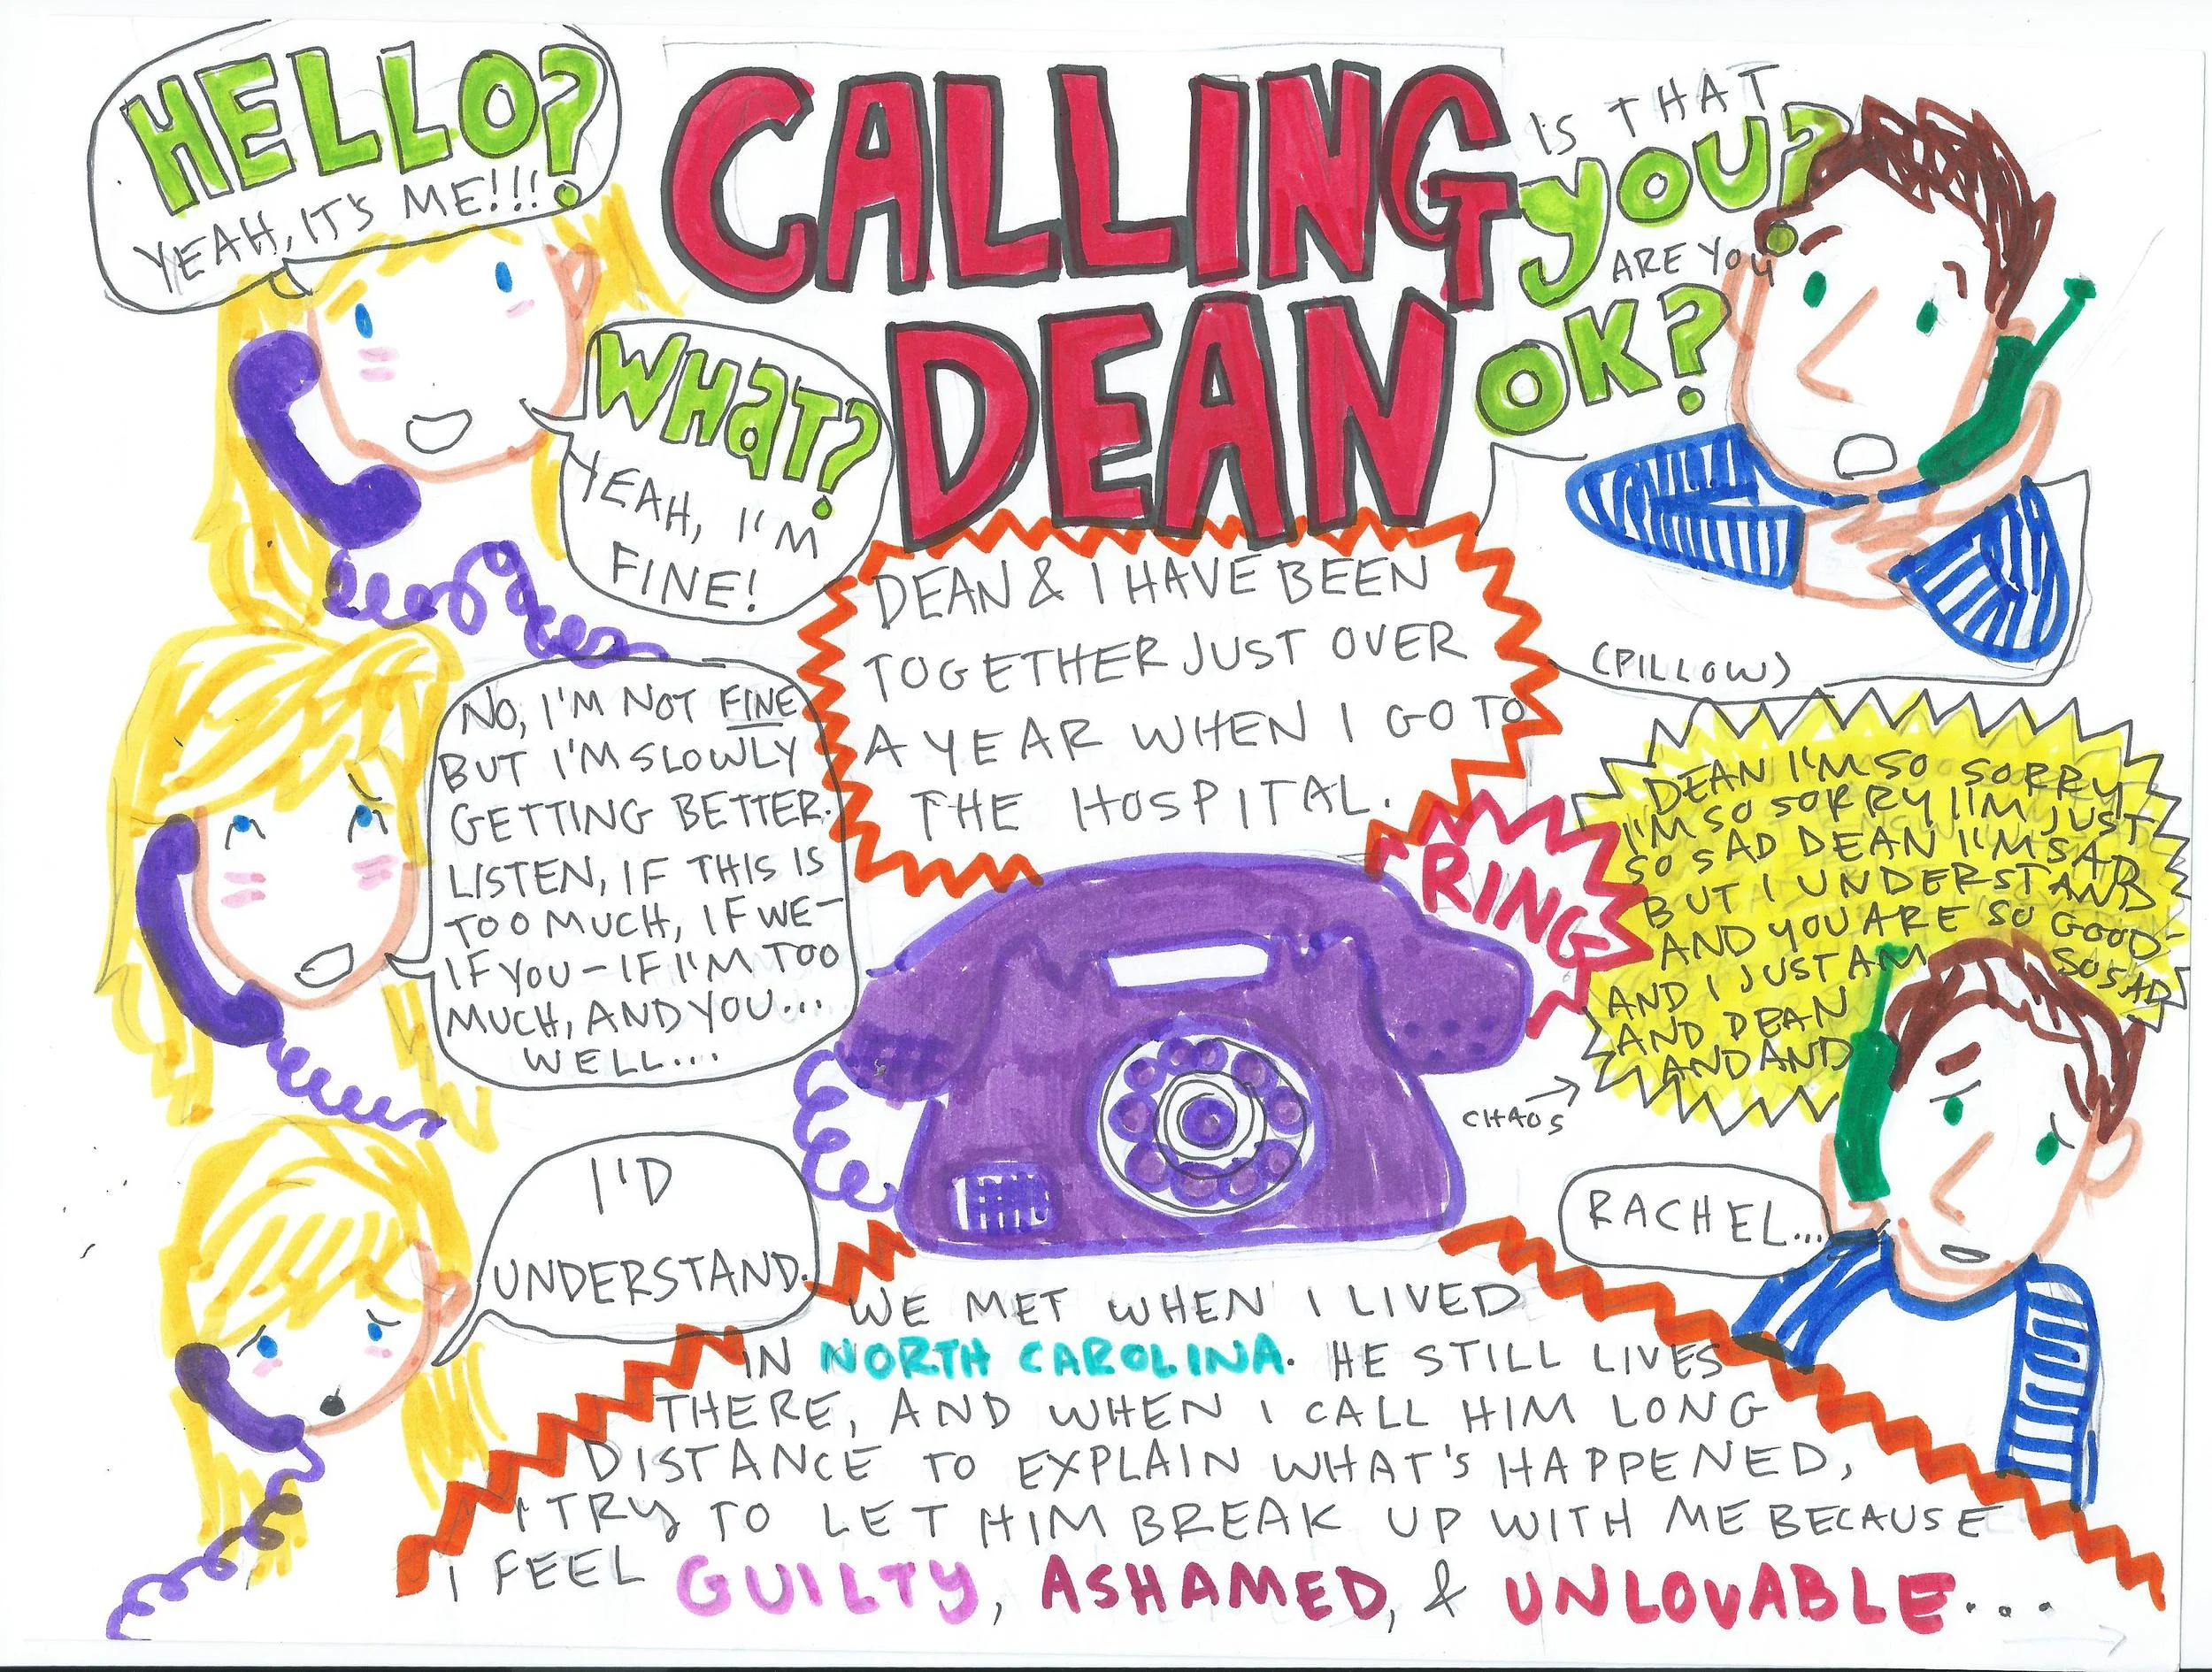 HELLO?
YEAH, IT'S ME!!!
CALLING
DEAN
IS THAT
YOU?
ARE YOU
OK?
WHAT?
YEAH, I'M
FINE!
DEAN & I HAVE BEEN
TOGETHER JUST OVER
A YEAR WHEN I GO TO
THE HOSPITAL.
(PILLOW)
NO, I'M NOT FINE
BUT I'M SLOWLY
GETTING BETTER.
LISTEN, IF THIS IS
TOO MUCH, IF WE-
IF YOU - IF I'M TOO
MUCH, AND YOU...
WELL...
RING
DEAN I'M SO SORRY
I'M SO SORRY I'M JUST
SO SAD DEAN I'M SAD
BUT I UNDERSTAND
AND YOU ARE SO GOOD-
AND I JUST AM SO SAD
AND DEAN
AND AND
CHAOS
RACHEL...
I'D
UNDERSTAND.
WE MET WHEN I LIVED
IN NORTH CAROLINA. HE STILL LIVES
THERE, AND WHEN I CALL HIM LONG
DISTANCE TO EXPLAIN WHAT'S HAPPENED,
I TRY TO LET HIM BREAK UP WITH ME BECAUSE
I FEEL GUILTY, ASHAMED, & UNLOVABLE...